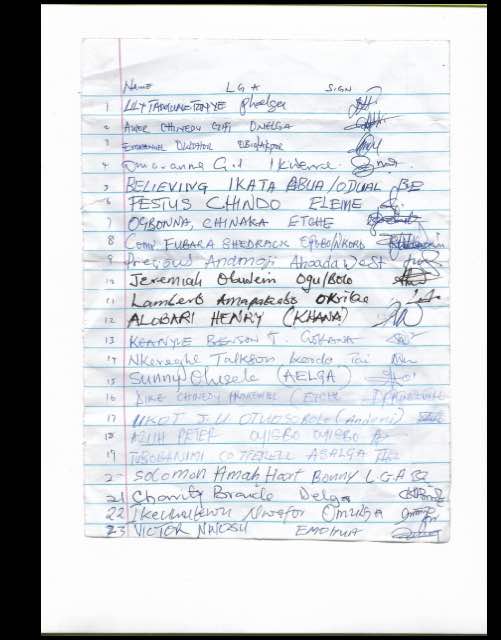 Name LGA SIGN
1 LILY TAMUNOTONYE Phalga
2 CHINEDU ONELGA
3 EMMANUEL OBIO/AKPOR
4 G. Ikwerre
5 BELIEVING IKATA ABUA/ODUAL
6 FESTUS CHINDO ELEME
7 OGBONNA, CHINAKA ETCHE
8 Com FUBARA SHEDRACK OPOBO/NKORO
9 Precious Andmoji Ahoada West
10 Jeremiah Oluwein Ogu/Bolo
11 Lambert Amapakabo Okrika
12 ALOBARI HENRY (KHANA)
13 BENSON T. GOKANA
14 Nkereghe Talkson Tai
15 Sunny (AELGA)
16 DIKE CHINEDU (ETCHE
17 UKOT J.U (Andoni)
18 AZIIH PETER OYIGBO OYIGBO
19 COTTERELL ASALGA
20 Solomon Amah Hart Bonny LGA
21 Charity Braide Delga
22 Ikechukwu Nwafor Omulga
23 VICTOR EMOHUA